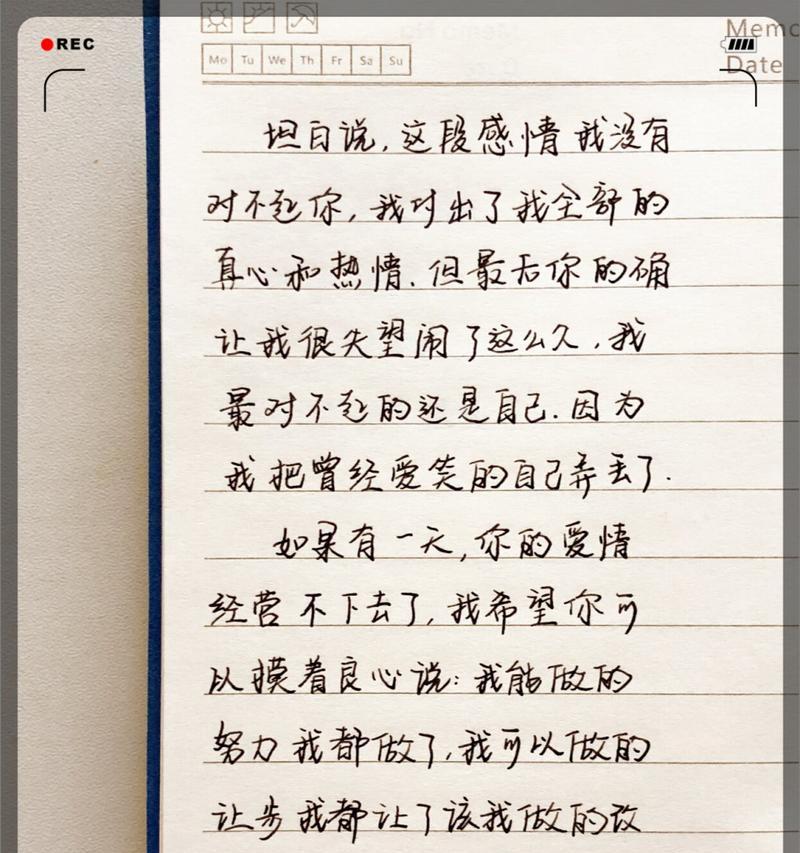 REC
Memo
Date
Mo Tu We Th Fr Sa Su
坦白说,这段感情我没有
对不起你,我付出了我全部的
真心和热情.但最后你的确
让我很失望闹了这么久,我
最对不起的还是自己.因为
我把曾经爱笑的自己弄丢了.
如果有一天,你的爱情
经营不下去了,我希望你可
以摸着良心说:我能做的
努力我都做了,我可以做的
让步我都让了该我做的改